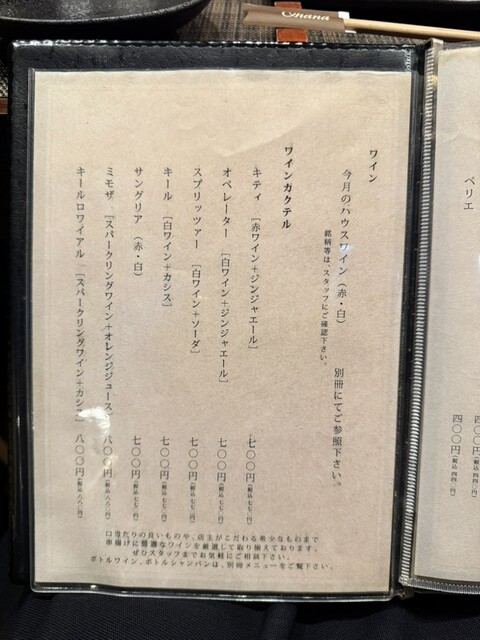 Ohana
ワイン
今月のハウスワイン（赤・白）　別冊にてご参照下さい。
銘柄等は、スタッフにご確認下さい。
ワインカクテル
キティ　［赤ワイン＋ジンジャエール］　七〇〇円（税込七七〇円）
オペレーター　［白ワイン＋ジンジャエール］　七〇〇円（税込七七〇円）
スプリッツァー　［白ワイン＋ソーダ］　七〇〇円（税込七七〇円）
キール　［白ワイン＋カシス］　七〇〇円（税込七七〇円）
サングリア　（赤・白）　七〇〇円（税込七七〇円）
ミモザ　［スパークリングワイン＋オレンジジュース］　八〇〇円（税込八八〇円）
キールロワイアル　［スパークリングワイン＋カシス］　八〇〇円（税込八八〇円）
口当たりの良いものや、店主がこだわる希少なものまで
串揚げに最適なワインを厳選して取り揃えております。
ぜひスタッフまでお気軽にご相談下さい。
ボトルワイン、ボトルシャンパンは、別冊メニューをご覧下さい。
ペリエ
四〇〇円（税込四四〇円）